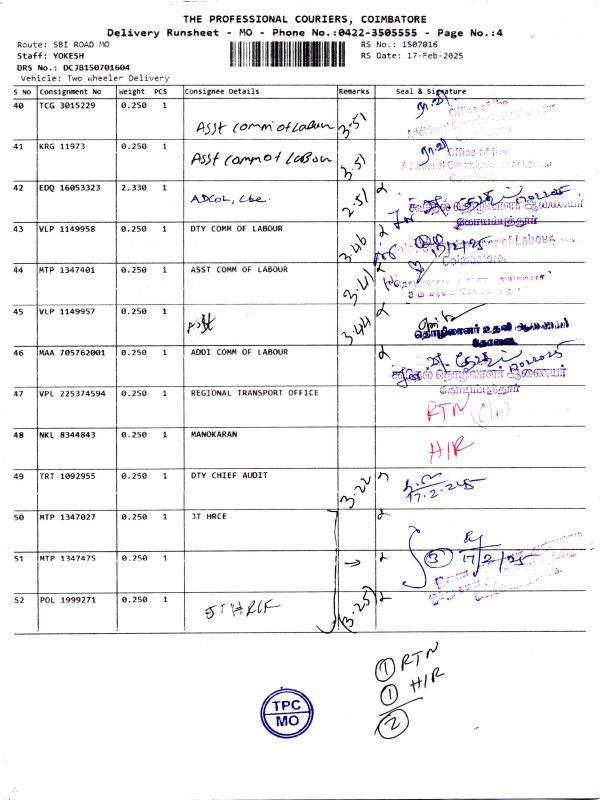 THE PROFESSIONAL COURIERS, COIMBATORE
Delivery Runsheet - MO - Phone No.:0422-3505555 - Page No.:4
Route: SBI ROAD MO RS No.: 1507016
Staff: YOKESH RS Date: 17-Feb-2025
DRS No.: DCJB150701604
Vehicle: Two Wheeler Delivery
S No Consignment No Weight PCS Consignee Details Remarks Seal & Signature
40 TCG 3015229 0.250 1 Asst Comm of Labour 3.51
Office of the
Additional Commissioner of Labour
41 KRG 11973 0.250 1 Asst Comm of Labour 3.51
Office of the
Additional Commissioner of Labour
42 EDQ 16053323 2.330 1 ADCOL, Cbe. 2.51
கூடுதல் தொழிலாளர் ஆணையர்
கோயம்புத்தூர்
43 VLP 1149958 0.250 1 DTY COMM OF LABOUR 3.46
of Labour,
Coimbatore.
17/2/25
44 MTP 1347401 0.250 1 ASST COMM OF LABOUR 3.41
45 VLP 1149957 0.250 1 Asst 3.44
தொழிலாளர் உதவி ஆணையர்
கோவை
46 MAA 705762001 0.250 1 ADDI COMM OF LABOUR
கூடுதல் தொழிலாளர் ஆணையர்
கோயம்புத்தூர்
47 VPL 225374594 0.250 1 REGIONAL TRANSPORT OFFICE RTN
48 NKL 8344843 0.250 1 MANOKARAN H/R
49 TRT 1092955 0.250 1 DTY CHIEF AUDIT 3.22
17.2.25
50 MTP 1347027 0.250 1 JT HRCE
51 MTP 1347475 0.250 1 3 17/2/25
52 POL 1999271 0.250 1 JT HRCE 3.25
1 RTN
1 H/R
2
TPC
MO